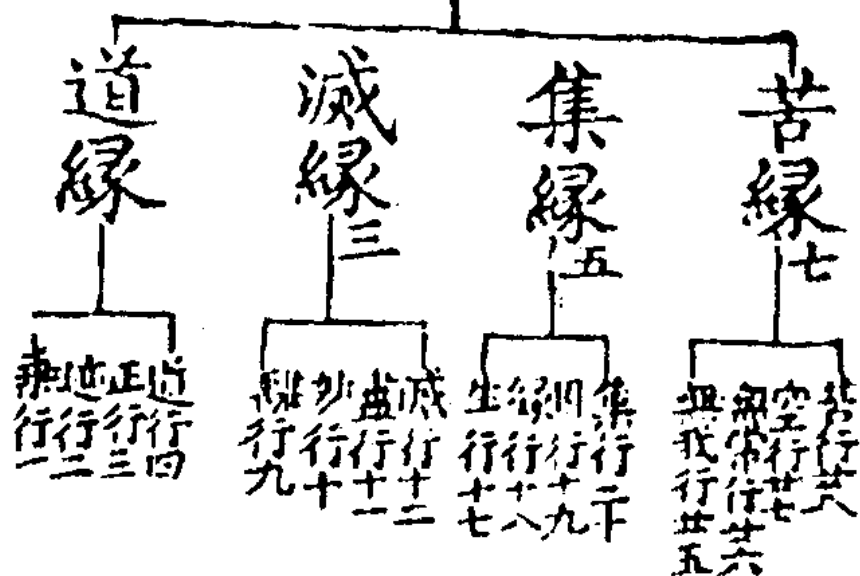 苦縁七
集縁五
滅縁三
道縁
苦行廿八
空行廿七
無常行廿六
無我行廿五
集行二十
因行十九
縁行十八
生行十七
滅行十二
盡行十一
妙行十
離行九
道行四
正行三
迹行二
乗行一